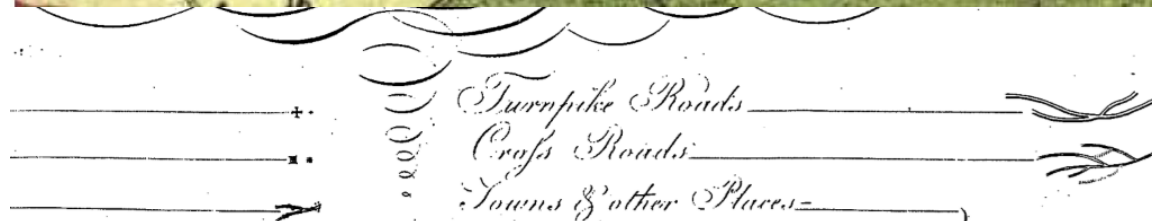 Turnpike Roads
Croſs Roads
Towns & other Places